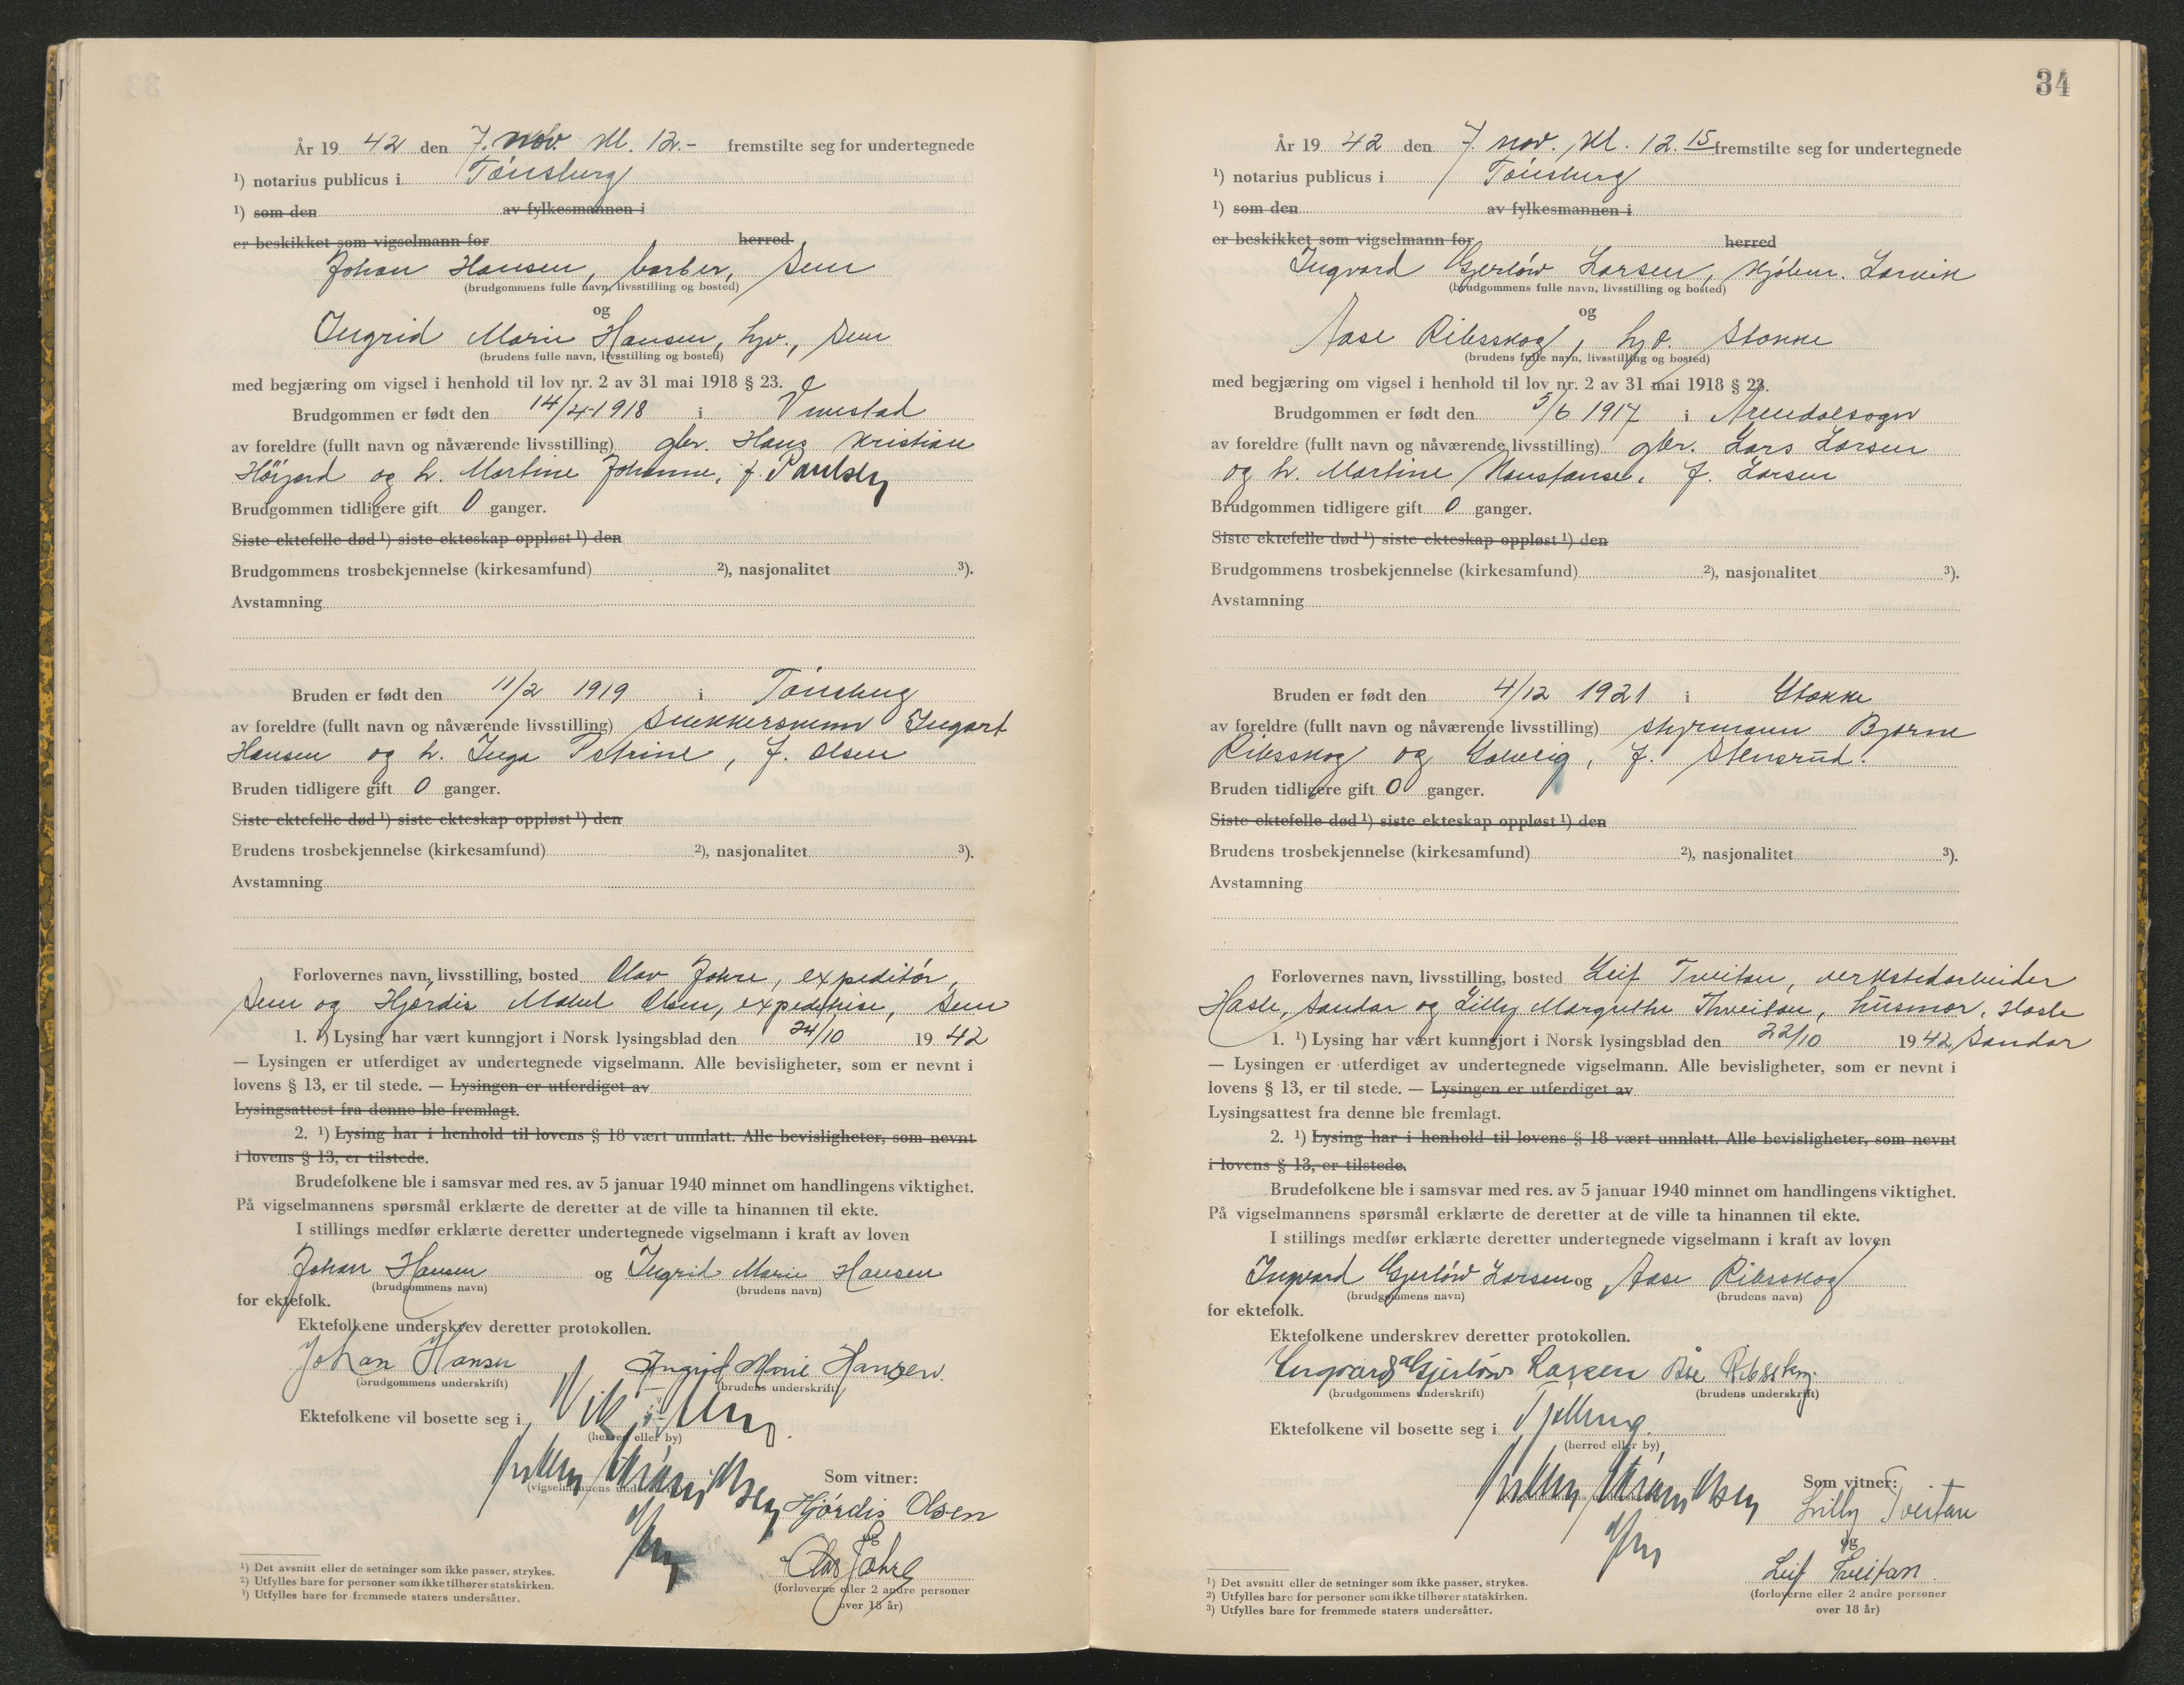 År 19 42 den 7. nov. kl. 12.- fremstilte seg for undertegnede
¹) notarius publicus i Tönsberg
¹) som den av fylkesmannen i
er beskikket som vigselmann for herred
Johan Hansen, barber, Sem
(brudgommens fulle navn, livsstilling og bosted)
og
Ingrid Marie Hansen, hjv., Sem
(brudens fulle navn, livsstilling og bosted)
med begjæring om vigsel i henhold til lov nr. 2 av 31 mai 1918 § 23.
Brudgommen er født den 14/4-1918 i
av foreldre (fullt navn og nåværende livsstilling) gbr. Hans Kristian
Höijord og h. Martine Johanne, f. Paulsen
Brudgommen tidligere gift 0 ganger.
Siste ektefelle død ¹) siste ekteskap oppløst ¹) den
Brudgommens trosbekjennelse (kirkesamfund) ²), nasjonalitet ³).
Avstamning
Bruden er født den 11/2 1919 i Tönsberg
av foreldre (fullt navn og nåværende livsstilling) snekkersvenn Ingart
Hansen og h. Inga Petrine, f. Olsen
Bruden tidligere gift 0 ganger.
Siste ektefelle død ¹) siste ekteskap oppløst ¹) den
Brudens trosbekjennelse (kirkesamfund) ²), nasjonalitet ³).
Avstamning
Forlovernes navn, livsstilling, bosted Olav Fohre, expeditör,
Sem og Hjördis Mabel Olsen, expeditrise, Sem
1. ¹) Lysing har vært kunngjort i Norsk lysingsblad den 24/10 19 42
— Lysingen er utferdiget av undertegnede vigselmann. Alle bevisligheter, som er nevnt i
lovens § 13, er til stede. — Lysingen er utferdiget av
Lysingsattest fra denne ble fremlagt.
2. ¹) Lysing har i henhold til lovens § 18 vært unnlatt. Alle bevisligheter, som nevnt
i lovens § 13, er tilstede.
Brudefolkene ble i samsvar med res. av 5 januar 1940 minnet om handlingens viktighet.
På vigselmannens spørsmål erklærte de deretter at de ville ta hinannen til ekte.
I stillings medfør erklærte deretter undertegnede vigselmann i kraft av loven
Johan Hansen og Ingrid Marie Hansen
(brudgommens navn) (brudens navn)
for ektefolk.
Ektefolkene underskrev deretter protokollen.
Johan Hansen Ingrid Marie Hansen.
(brudgommens underskrift) (brudens underskrift)
Ektefolkene vil bosette seg i Vik i
(herred eller by)
Som vitner:
(vigselmannens underskrift)
Hjördis Olsen
og
Olav Fohre
(forloverne eller 2 andre personer
over 18 år)
¹) Det avsnitt eller de setninger som ikke passer, strykes.
²) Utfylles bare for personer som ikke tilhører statskirken.
³) Utfylles bare for fremmede staters undersåtter.
34
År 19 42 den 7. nov. kl. 12.15 fremstilte seg for undertegnede
¹) notarius publicus i Tönsberg
¹) som den av fylkesmannen i
er beskikket som vigselmann for herred
Ingvard Gjerlöw Larsen, kjöbm. Larvik
(brudgommens fulle navn, livsstilling og bosted)
og
Aase Ribsskog, hjv. Stokke
(brudens fulle navn, livsstilling og bosted)
med begjæring om vigsel i henhold til lov nr. 2 av 31 mai 1918 § 23.
Brudgommen er født den 5/6 1917 i Arendalsogn
av foreldre (fullt navn og nåværende livsstilling) gbr. Lars Larsen
og h. Martine Konstanse, f. Larsen
Brudgommen tidligere gift 0 ganger.
Siste ektefelle død ¹) siste ekteskap oppløst ¹) den
Brudgommens trosbekjennelse (kirkesamfund) ²), nasjonalitet ³).
Avstamning
Bruden er født den 4/12 1921 i Stokke
av foreldre (fullt navn og nåværende livsstilling) styrmann Bjarne
Ribsskog og Solveig, f. Stensrud.
Bruden tidligere gift 0 ganger.
Siste ektefelle død ¹) siste ekteskap oppløst ¹) den
Brudens trosbekjennelse (kirkesamfund) ²), nasjonalitet ³).
Avstamning
Forlovernes navn, livsstilling, bosted Leif Tveitan, verkstedarbeider
Hasle, Sandar og Lilly Margrethe Thveitan, husmor, Hasle
1. ¹) Lysing har vært kunngjort i Norsk lysingsblad den 22/10 19 42 Sandar
— Lysingen er utferdiget av undertegnede vigselmann. Alle bevisligheter, som er nevnt i
lovens § 13, er til stede. — Lysingen er utferdiget av
Lysingsattest fra denne ble fremlagt.
2. ¹) Lysing har i henhold til lovens § 18 vært unnlatt. Alle bevisligheter, som nevnt
i lovens § 13, er tilstede.
Brudefolkene ble i samsvar med res. av 5 januar 1940 minnet om handlingens viktighet.
På vigselmannens spørsmål erklærte de deretter at de ville ta hinannen til ekte.
I stillings medfør erklærte deretter undertegnede vigselmann i kraft av loven
Ingvard Gjerlöw Larsen og Aase Ribsskog
(brudgommens navn) (brudens navn)
for ektefolk.
Ektefolkene underskrev deretter protokollen.
Ingvard Gjerlöw Larsen Åse Ribsskog.
(brudgommens underskrift) (brudens underskrift)
Ektefolkene vil bosette seg i Tjølling.
(herred eller by)
Som vitner:
Lilly Tveitan
og
Leif Tveitan.
(forloverne eller 2 andre personer
over 18 år)
¹) Det avsnitt eller de setninger som ikke passer, strykes.
²) Utfylles bare for personer som ikke tilhører statskirken.
³) Utfylles bare for fremmede staters undersåtter.